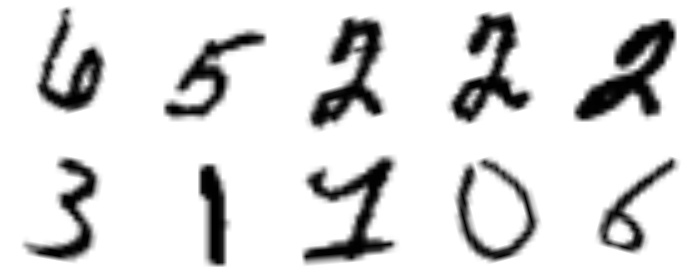 6 5 2 2 2
3 1 1 0 6